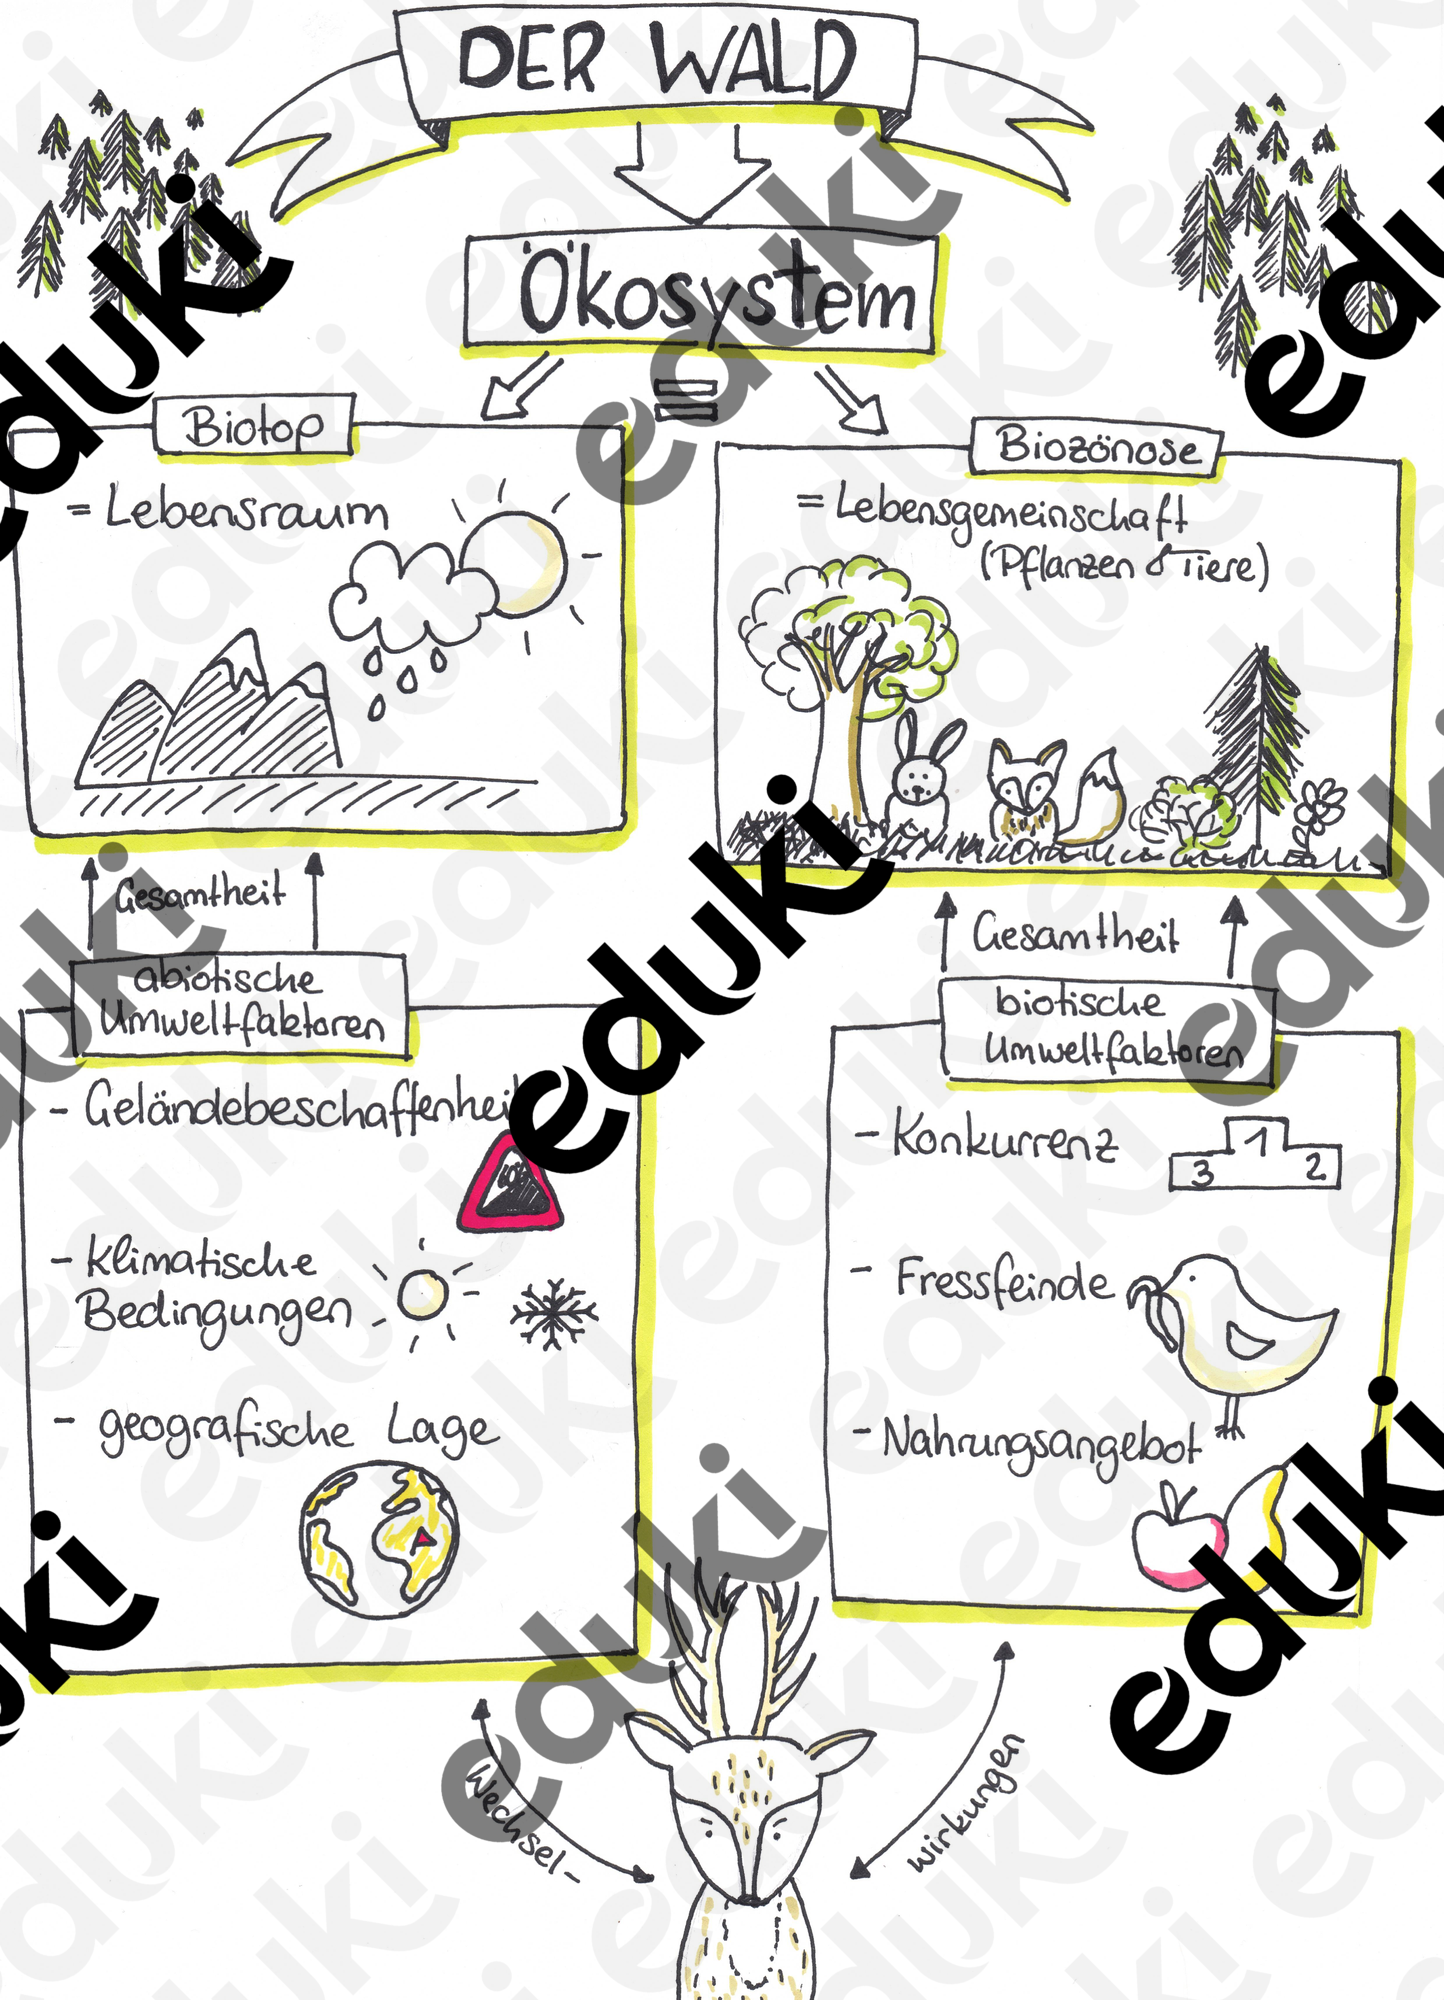 DER WALD
Ökosystem
=
Biotop
= Lebensraum
Biozönose
= Lebensgemeinschaft
(Pflanzen & Tiere)
Gesamtheit
abiotische
Umweltfaktoren
- Geländebeschaffenheit
- klimatische
Bedingungen
- geografische Lage
Gesamtheit
biotische
Umweltfaktoren
- Konkurrenz
1
3 2
- Fressfeinde
- Nahrungsangebot
Wechsel-
wirkungen
eduki
eduki
eduki
eduki
eduki
eduki
eduki
eduki
eduki
eduki